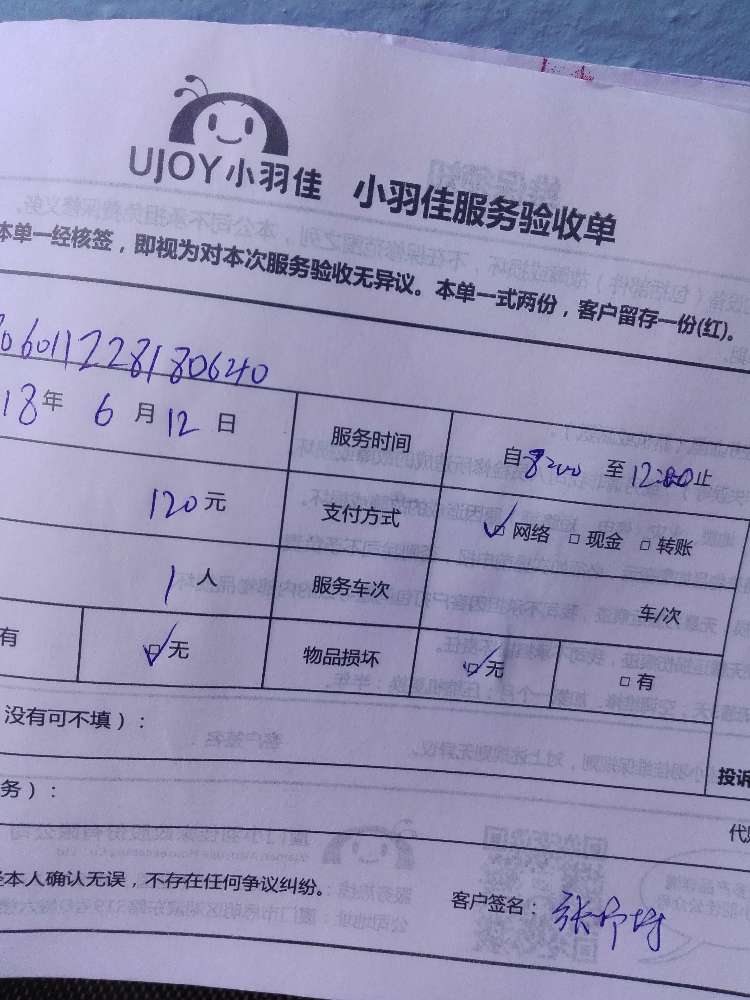 UJOY小羽佳 小羽佳服务验收单
本单一经核签，即视为对本次服务验收无异议。本单一式两份，客户留存一份(红)。
06011228180640
18年 6月12日 服务时间 自8:00 至12:00止
120元 支付方式 网络 现金 转账
1人 服务车次 车/次
有 无 物品损坏 无 有
没有可不填）：
投诉
务）：
代
本人确认无误，不存在任何争议纠纷。
客户签名：张